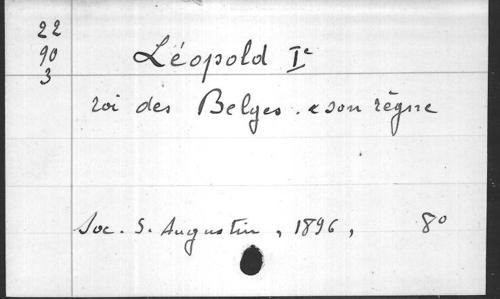 22
90
3
Léopold Ier
roi des Belges. & son règne
Soc. S. Augustin, 1896, 8°